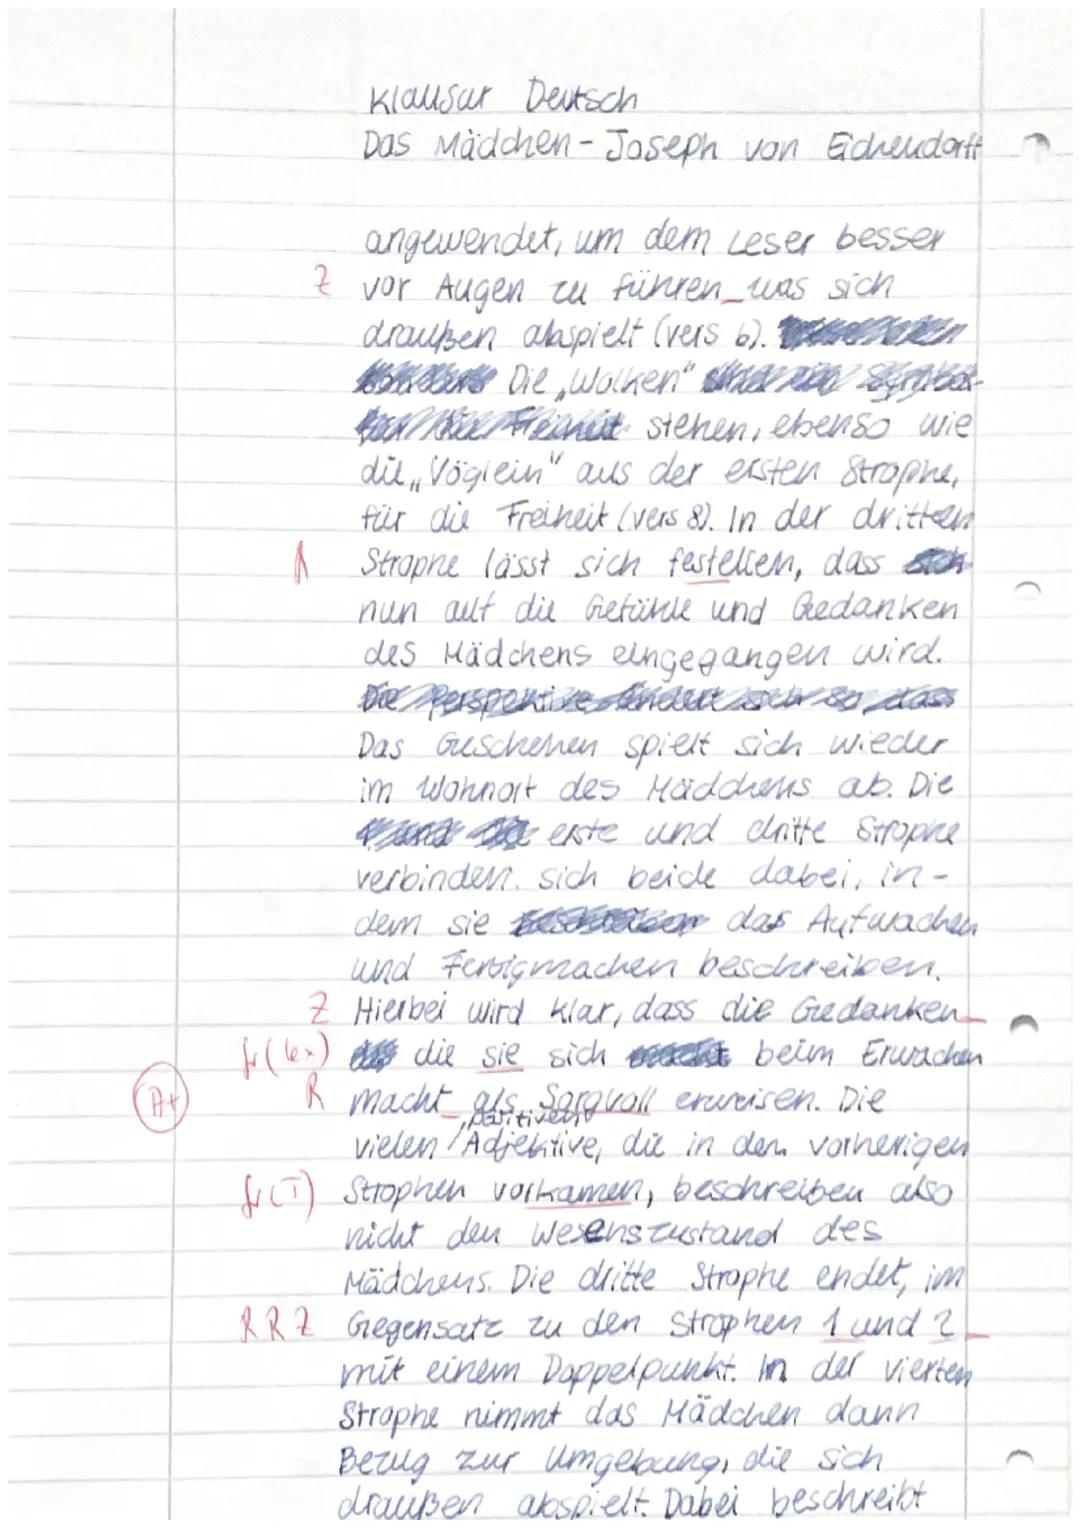 Klausur Deutsch
Das Mädchen - Joseph von Eichendorff
angewendet, um dem Leser besser
Z vor Augen zu führen_was sich
draußen abspielt (vers 6).
Die „Wolken"
stehen, ebenso wie
die „Vöglein" aus der ersten Strophe,
für die Freiheit (vers 8). In der dritten
R Strophe lässt sich festellen, dass sich
nun auf die Gefühle und Gedanken
des Mädchens eingegangen wird.
Die Perspektive ändert sich so, dass
Das Geschehen spielt sich wieder
im Wohnort des Mädchens ab. Die
erste und dritte Strophe
verbinden sich beide dabei, in-
dem sie das Aufwachen
und Fertigmachen beschreiben.
Z Hierbei wird klar, dass die Gedanken_
Gr (6x) die sie sich beim Erwachen
A+ R macht_als Sorgvoll erweisen. Die
positiven
vielen / Adjektive, die in den vorherigen
Gr (T) Strophen vorkamen, beschreiben also
nicht den Wesenszustand des
Mädchens. Die dritte Strophe endet, im
R R Z Gegensatz zu den Strophen 1 und 2_
mit einem Doppelpunkt. In der vierten
Strophe nimmt das Mädchen dann
Bezug zur Umgebung, die sich
draußen abspielt. Dabei beschreibt